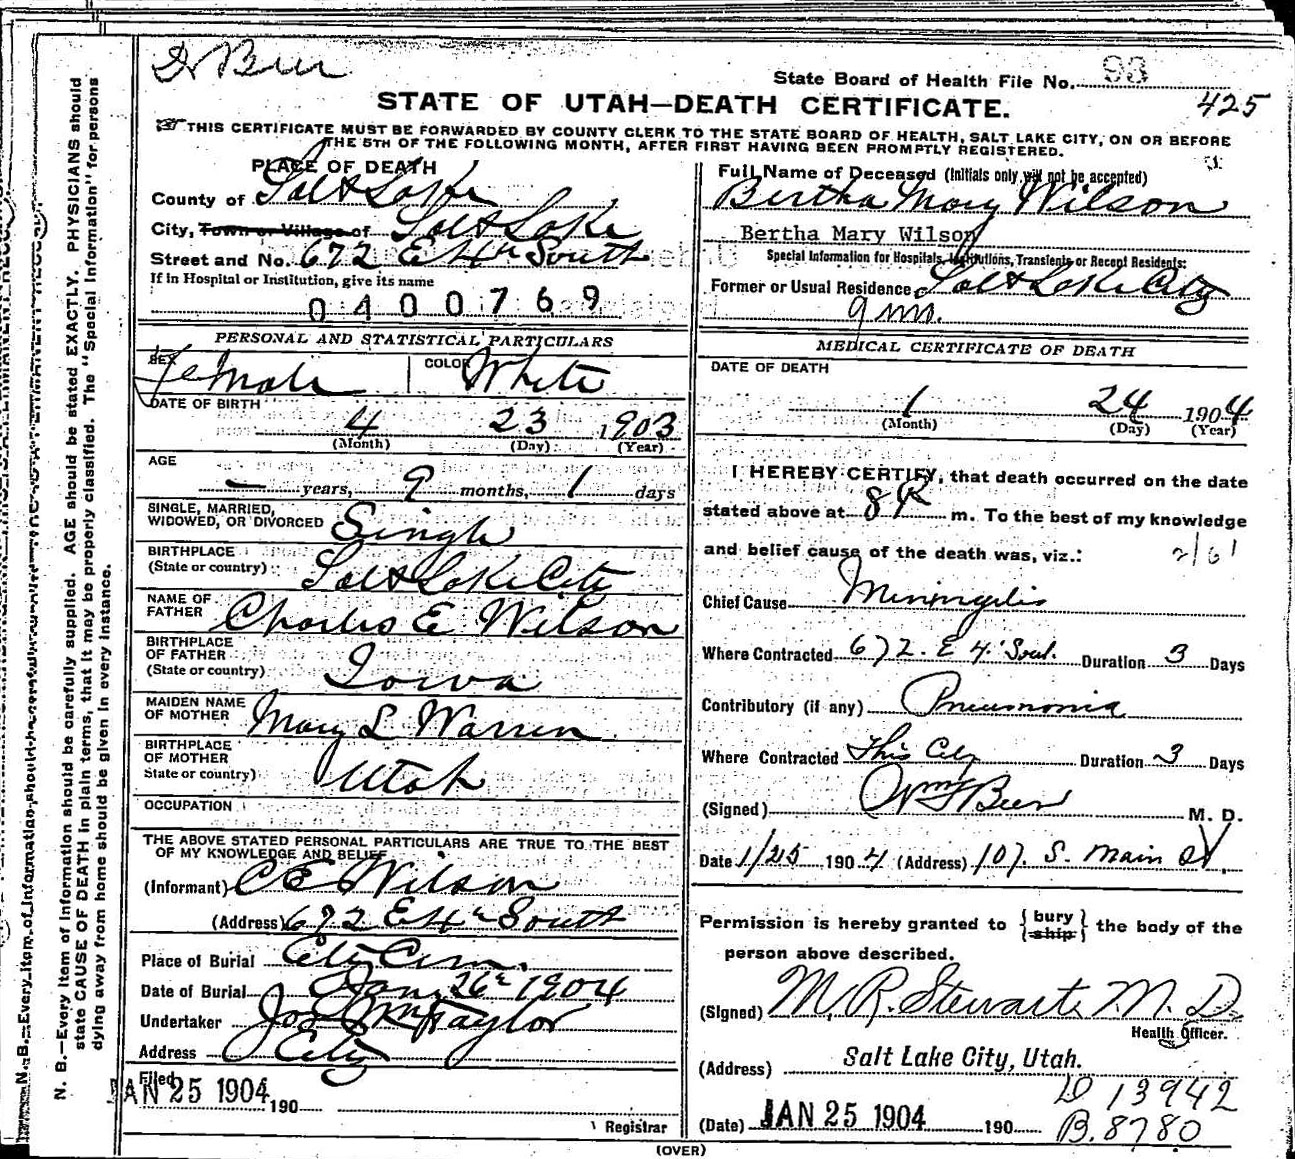 Dr Beer
State Board of Health File No. 93
425
STATE OF UTAH—DEATH CERTIFICATE.
THIS CERTIFICATE MUST BE FORWARDED BY COUNTY CLERK TO THE STATE BOARD OF HEALTH, SALT LAKE CITY, ON OR BEFORE
THE 5TH OF THE FOLLOWING MONTH, AFTER FIRST HAVING BEEN PROMPTLY REGISTERED.
PLACE OF DEATH
County of Salt Lake
City, Town or Village of Salt Lake
Street and No. 672 E 4th South
If in Hospital or Institution, give its name
0400769
PERSONAL AND STATISTICAL PARTICULARS
SEX Female COLOR White
DATE OF BIRTH
4 23 1903
(Month) (Day) (Year)
AGE
— years, 9 months, 1 days
SINGLE, MARRIED,
WIDOWED, OR DIVORCED Single
BIRTHPLACE
(State or country) Salt Lake City
NAME OF
FATHER Charles E Wilson
BIRTHPLACE
OF FATHER
(State or country) Iowa
MAIDEN NAME
OF MOTHER Mary L Warren
BIRTHPLACE
OF MOTHER
State or country) Utah
OCCUPATION
THE ABOVE STATED PERSONAL PARTICULARS ARE TRUE TO THE BEST
OF MY KNOWLEDGE AND BELIEF
(Informant) C E Wilson
(Address) 672 E 4th South
Place of Burial City Cem.
Date of Burial Jan 26th 1904
Undertaker Jos Wm Taylor
Address City
Filed
JAN 25 1904 190
Registrar
Full Name of Deceased (Initials only will not be accepted)
Bertha Mary Wilson
Bertha Mary Wilson
Special Information for Hospitals, Institutions, Transients or Recent Residents:
Former or Usual Residence Salt Lake City
9 mo.
MEDICAL CERTIFICATE OF DEATH
DATE OF DEATH
1 24 1904
(Month) (Day) (Year)
I HEREBY CERTIFY, that death occurred on the date
stated above at 8 P m. To the best of my knowledge
and belief cause of the death was, viz.: 2/61
Chief Cause Miningitis
Where Contracted 672. E 4. Sout. Duration 3 Days
Contributory (if any) Pneumonia
Where Contracted This City Duration 3 Days
(Signed) Wm F Beer M. D.
Date 1/25 1904 (Address) 107. S. Main St.
Permission is hereby granted to {bury ship} the body of the
person above described.
(Signed) M. R. Stewart M. D.
Health Officer.
(Address) Salt Lake City, Utah.
D 13942
(Date) JAN 25 1904 190
B. 8780
(OVER)
N. B.—Every item of information should be carefully supplied. AGE should be stated EXACTLY. PHYSICIANS should
state CAUSE OF DEATH in plain terms, that it may be properly classified. The "Special Information" for persons
dying away from home should be given in every instance.